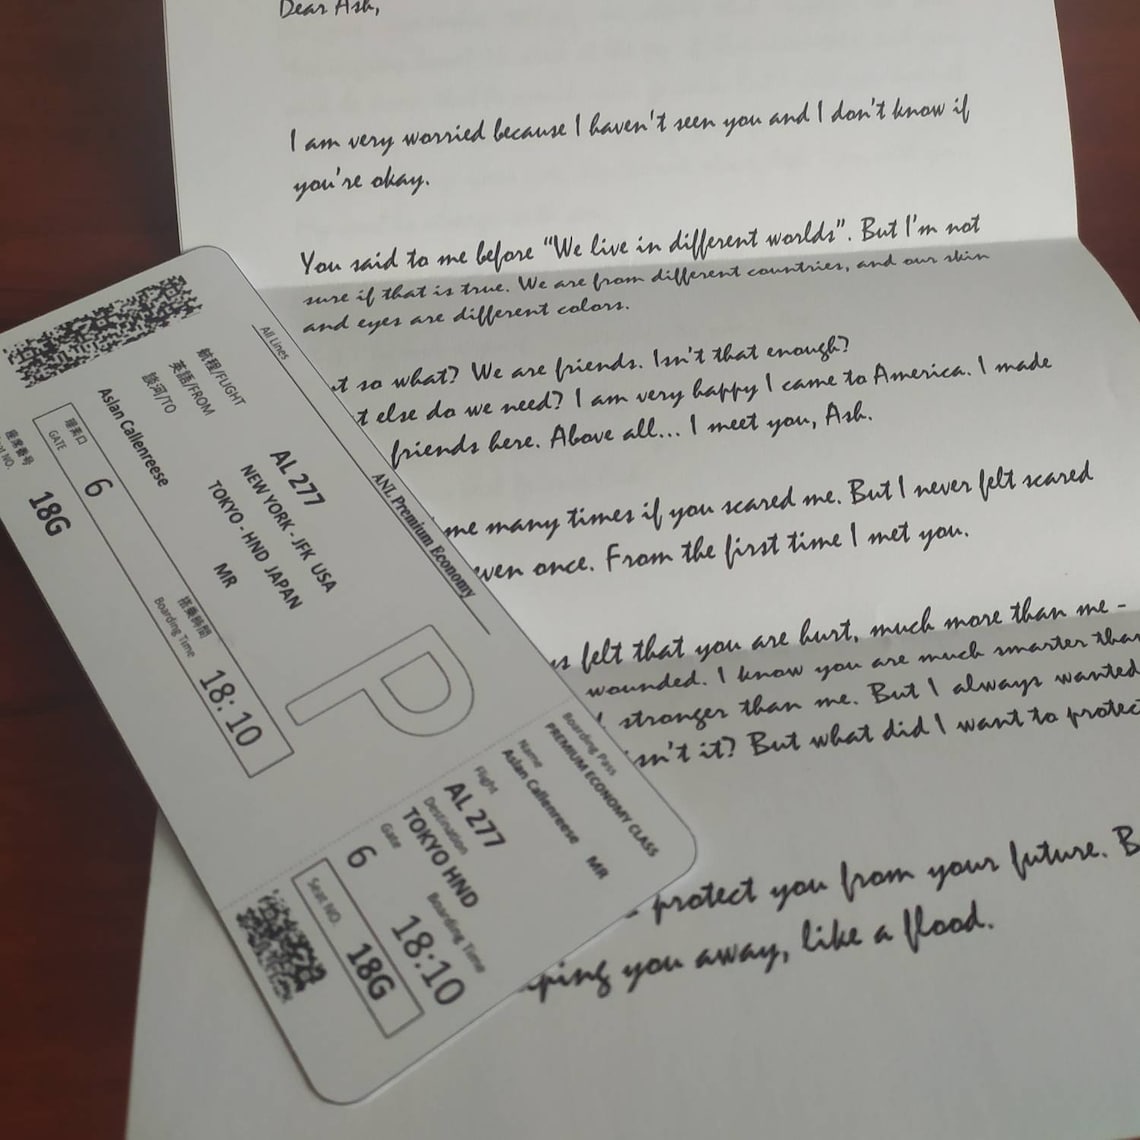 Dear Ash,
I am very worried because I haven't seen you and I don't know if
you're okay.
You said to me before "We live in different worlds". But I'm not
sure if that is true. We are from different countries, and our skin
and eyes are different colors.
so what? We are friends. Isn't that enough?
else do we need? I am very happy I came to America. I made
friends here. Above all... I meet you, Ash.
me many times if you scared me. But I never felt scared
even once. From the first time I met you.
felt that you are hurt, much more than me -
wounded. I know you are much smarter than
stronger than me. But I always wanted
isn't it? But what did I want to protect
protect you from your future.
you away, like a flood.
All Lines
ANL Premium Economy
航程/FLIGHT AL 277
/FROM NEW YORK - JFK USA
/TO TOKYO - HND JAPAN
Aslan Callenreese MR
GATE 6
Boarding Time 18:10
座席番号
18G
P
Boarding Pass
PREMIUM ECONOMY CLASS
Name
Aslan Callenreese MR
Flight
AL 277
Destination
TOKYO HND
Gate
6
Boarding Time
18:10
Seat NO.
18G